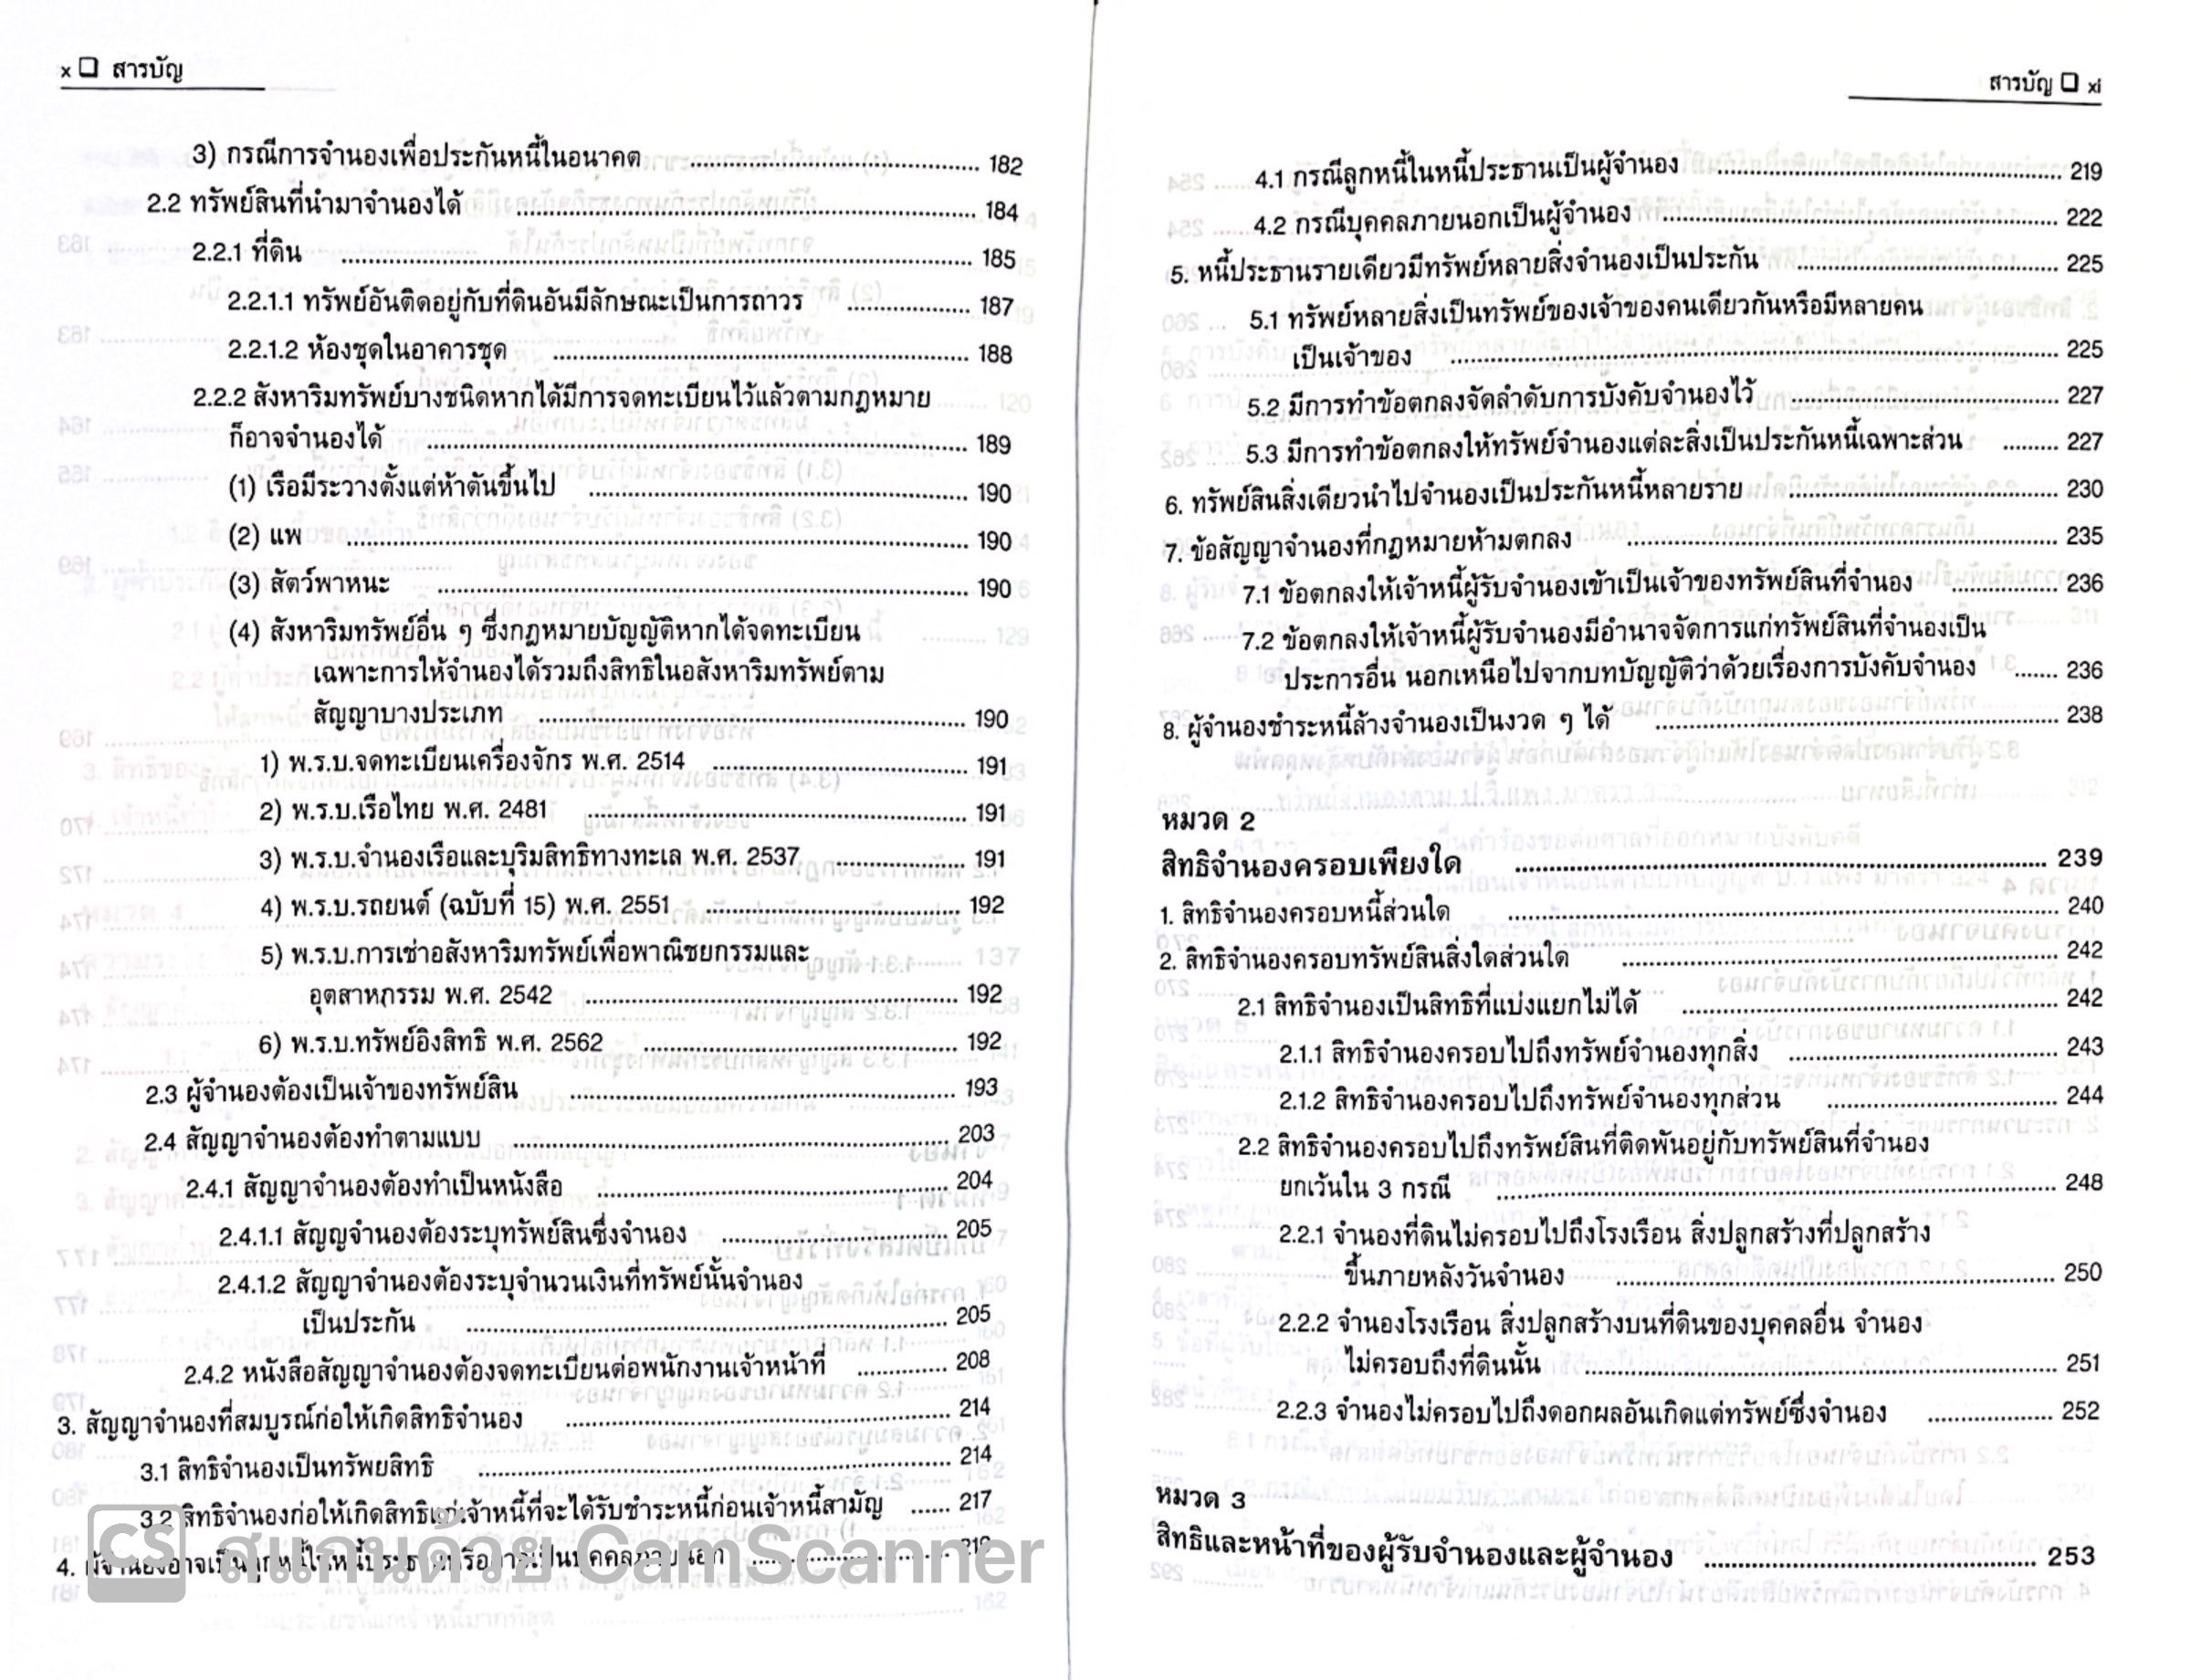 x ❑ สารบัญ
3) กรณีการจำนองเพื่อประกันหนี้ในอนาคต ........ 182
2.2 ทรัพย์สินที่นำมาจำนองได้ ........ 184
2.2.1 ที่ดิน ........ 185
2.2.1.1 ทรัพย์อันติดอยู่กับที่ดินอันมีลักษณะเป็นการถาวร ........ 187
2.2.1.2 ห้องชุดในอาคารชุด ........ 188
2.2.2 สังหาริมทรัพย์บางชนิดหากได้มีการจดทะเบียนไว้แล้วตามกฎหมาย
ก็อาจจำนองได้ ........ 189
(1) เรือมีระวางตั้งแต่ห้าตันขึ้นไป ........ 190
(2) แพ ........ 190
(3) สัตว์พาหนะ ........ 190
(4) สังหาริมทรัพย์อื่น ๆ ซึ่งกฎหมายบัญญัติหากได้จดทะเบียน
เฉพาะการให้จำนองได้รวมถึงสิทธิในอสังหาริมทรัพย์ตาม
สัญญาบางประเภท ........ 190
1) พ.ร.บ.จดทะเบียนเครื่องจักร พ.ศ. 2514 ........ 191
2) พ.ร.บ.เรือไทย พ.ศ. 2481 ........ 191
3) พ.ร.บ.จำนองเรือและบุริมสิทธิทางทะเล พ.ศ. 2537 ........ 191
4) พ.ร.บ.รถยนต์ (ฉบับที่ 15) พ.ศ. 2551 ........ 192
5) พ.ร.บ.การเช่าอสังหาริมทรัพย์เพื่อพาณิชยกรรมและ
อุตสาหกรรม พ.ศ. 2542 ........ 192
6) พ.ร.บ.ทรัพย์อิงสิทธิ พ.ศ. 2562 ........ 192
2.3 ผู้จำนองต้องเป็นเจ้าของทรัพย์สิน ........ 193
2.4 สัญญาจำนองต้องทำตามแบบ ........ 203
2.4.1 สัญญาจำนองต้องทำเป็นหนังสือ ........ 204
2.4.1.1 สัญญจำนองต้องระบุทรัพย์สินซึ่งจำนอง ........ 205
2.4.1.2 สัญญาจำนองต้องระบุจำนวนเงินที่ทรัพย์นั้นจำนอง
เป็นประกัน ........ 205
2.4.2 หนังสือสัญญาจำนองต้องจดทะเบียนต่อพนักงานเจ้าหน้าที่ ........ 208
3. สัญญาจำนองที่สมบูรณ์ก่อให้เกิดสิทธิจำนอง ........ 214
3.1 สิทธิจำนองเป็นทรัพยสิทธิ ........ 214
3.2 สิทธิจำนองก่อให้เกิดสิทธิแก่เจ้าหนี้ที่จะได้รับชำระหนี้ก่อนเจ้าหนี้สามัญ ...... 217
4. ผู้จำนองอาจเป็นลูกหนี้ในหนี้ประธานหรืออาจเป็นบุคคลภายนอก ........ 219
CS สแกนด้วย CamScanner
สารบัญ ❑ xi
4.1 กรณีลูกหนี้ในหนี้ประธานเป็นผู้จำนอง ........ 219
4.2 กรณีบุคคลภายนอกเป็นผู้จำนอง ........ 222
5. หนี้ประธานรายเดียวมีทรัพย์หลายสิ่งจำนองเป็นประกัน ........ 225
5.1 ทรัพย์หลายสิ่งเป็นทรัพย์ของเจ้าของคนเดียวกันหรือมีหลายคน
เป็นเจ้าของ ........ 225
5.2 มีการทำข้อตกลงจัดลำดับการบังคับจำนองไว้ ........ 227
5.3 มีการทำข้อตกลงให้ทรัพย์จำนองแต่ละสิ่งเป็นประกันหนี้เฉพาะส่วน ........ 227
6. ทรัพย์สินสิ่งเดียวนำไปจำนองเป็นประกันหนี้หลายราย ........ 230
7. ข้อสัญญาจำนองที่กฎหมายห้ามตกลง ........ 235
7.1 ข้อตกลงให้เจ้าหนี้ผู้รับจำนองเข้าเป็นเจ้าของทรัพย์สินที่จำนอง ........ 236
7.2 ข้อตกลงให้เจ้าหนี้ผู้รับจำนองมีอำนาจจัดการแก่ทรัพย์สินที่จำนองเป็น
ประการอื่น นอกเหนือไปจากบทบัญญัติว่าด้วยเรื่องการบังคับจำนอง ....... 236
8. ผู้จำนองชำระหนี้ล้างจำนองเป็นงวด ๆ ได้ ........ 238
หมวด 2
สิทธิจำนองครอบเพียงใด ........ 239
1. สิทธิจำนองครอบหนี้ส่วนใด ........ 240
2. สิทธิจำนองครอบทรัพย์สินสิ่งใดส่วนใด ........ 242
2.1 สิทธิจำนองเป็นสิทธิที่แบ่งแยกไม่ได้ ........ 242
2.1.1 สิทธิจำนองครอบไปถึงทรัพย์จำนองทุกสิ่ง ........ 243
2.1.2 สิทธิจำนองครอบไปถึงทรัพย์จำนองทุกส่วน ........ 244
2.2 สิทธิจำนองครอบไปถึงทรัพย์สินที่ติดพันอยู่กับทรัพย์สินที่จำนอง
ยกเว้นใน 3 กรณี ........ 248
2.2.1 จำนองที่ดินไม่ครอบไปถึงโรงเรือน สิ่งปลูกสร้างที่ปลูกสร้าง
ขึ้นภายหลังวันจำนอง ........ 250
2.2.2 จำนองโรงเรือน สิ่งปลูกสร้างบนที่ดินของบุคคลอื่น จำนอง
ไม่ครอบถึงที่ดินนั้น ........ 251
2.2.3 จำนองไม่ครอบไปถึงดอกผลอันเกิดแต่ทรัพย์ซึ่งจำนอง ........ 252
หมวด 3
สิทธิและหน้าที่ของผู้รับจำนองและผู้จำนอง ........ 253